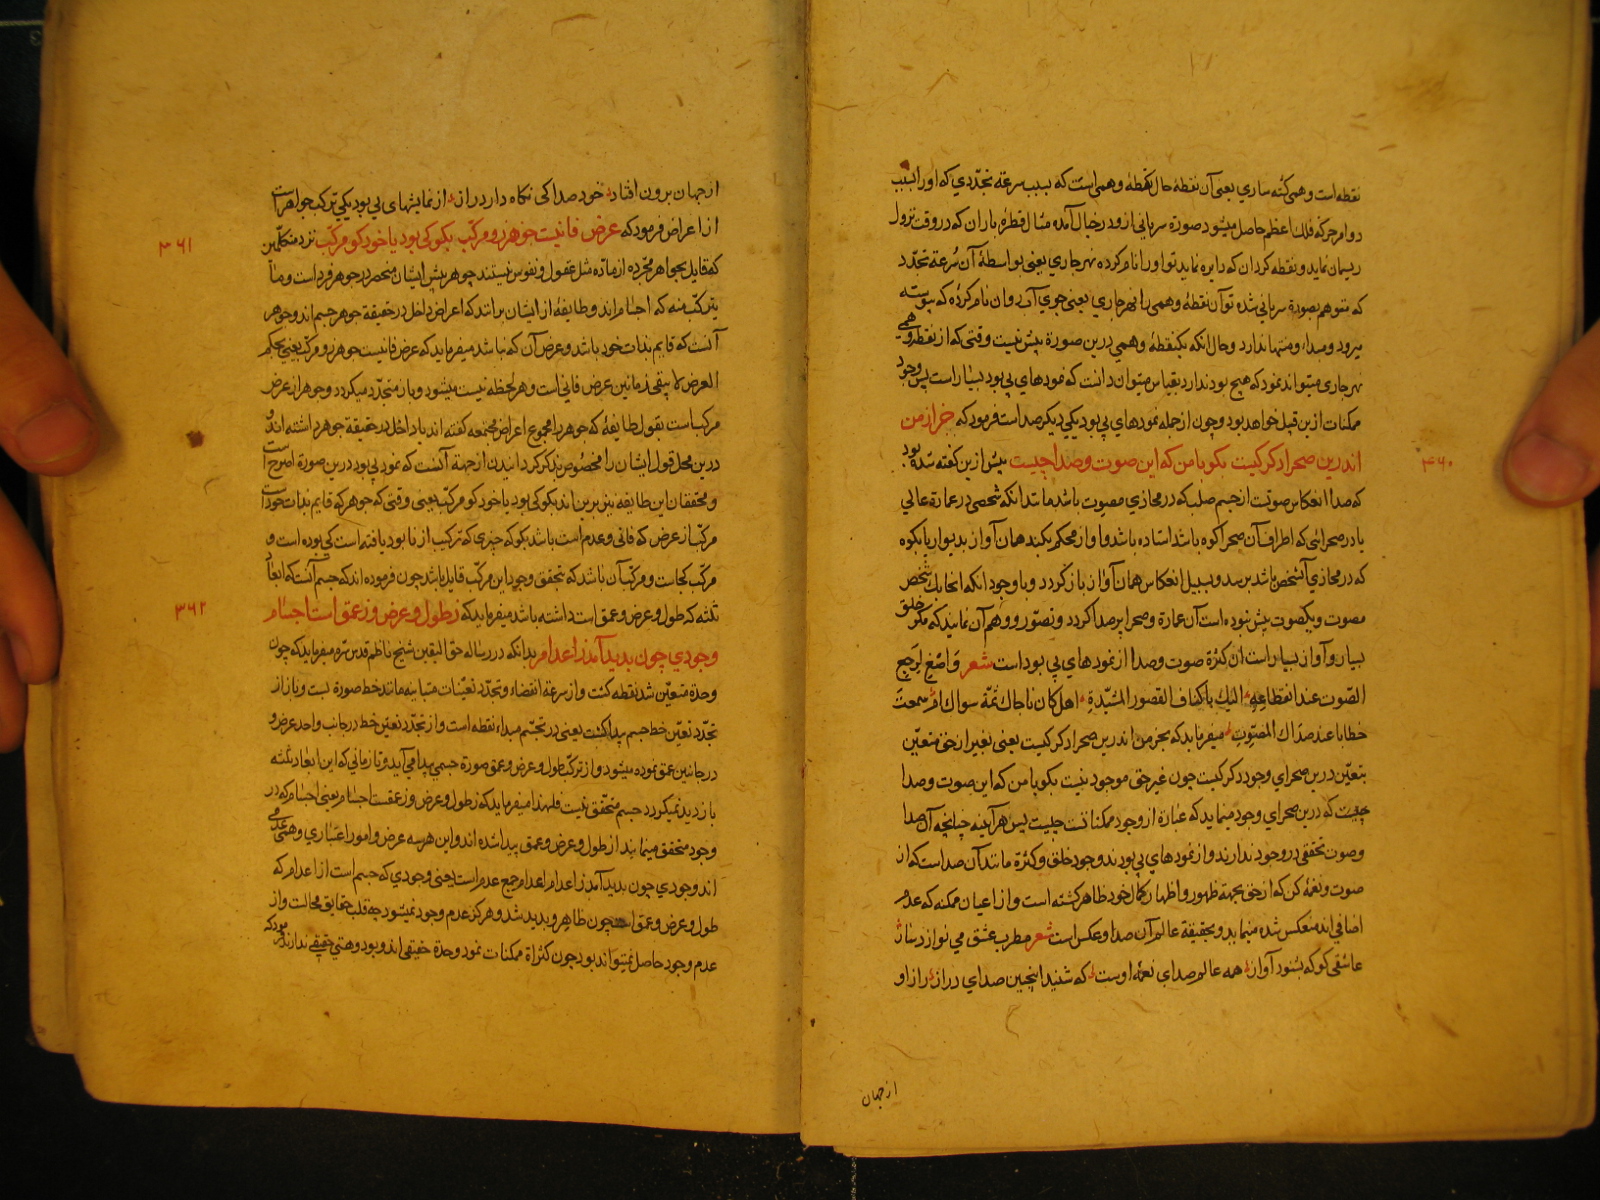 نقطه است وهمی کنه ساری یعنی آن نقطهٔ حال کنقطهٔ وهمی است که بسبب سرعة تجدّدي که اورا بسبب
دوام حرکة فلك اعظم حاصل میشود صورة سریانی ازو در خیال آمده مثال قطرهٔ باران که در وقت نزول
ریسمان نماید و نقطه کردان که دایره نماید تو اورا نام کرده نهر جاري یعنی بواسطهٔ آن سُرعة تجدّد
که متوهم بصورة سریانی شده تو آن نقطهٔ وهمی را نهر جاري یعنی جوي آب روان نام کردهٔ که پیوسته
میرود ومبداء ومنتها ندارد وحال انکه یکنقطهٔ وهمی درین صورة بیش نیست وقتی که از نقطه وهمی
نهر جاری میتواند نمود که هیچ بود ندارد بقیاس میتوان دانست که نمودهای بی بود بسیار است پس وجود
ممکنات ازین قبیل خواهد بود وچون از جمله نمودهاي بی بود یکي دیکر صداست فرمود که جز از من
اندرین صحرا دکر کیست بکو با من که این صوت و صدا چیست پیش ازین کفته شده بود
۴۶۰
که صدا انعکاس صوتست از جسم صلب که در محاذي مصوت باشد مانند انکه شخصی در عمارة عالي
یا در صحرائی که اطراف آن صحرا کوه باشد استاده باشد و آواز محکم بکند همان آواز بدیوار یا بکوه
که در محاذي آنشخص باشد برسد و بسبیل انعکاس همان آواز باز کردد وباوجود انکه انجا یك شخص
مصوت ویکصوت بیش نبوده است آن عمارة وصحرا پر صدا کردد وتصوّر ووهم آن نماید که مکر خلق
بسیار وآواز بسیار است ان کثرة صوت وصدا از نمودهاي بی بود است شعر وَاصْغِ لِرَجعِ
الصّوتِ عندَ انقطاعِهِ الیك باکناف القصور المشیّدةِ اهل کان ناجاك ثمّة سواك امْ سمعتَ
خطابا عند صدّاك المصوّتِ میفرماید که بجز من اندرین صحرا دکر کیست یعنی بغیر از حق متعیّن
بتعیّن درین صحراي وجود دکر کیست چون غیر حق موجود نیست بکو با من که این صوت و صدا
چیست که درین صحراي وجود مینماید که عبارة از وجود ممکناتست چیست پس هرآینه چنانچه آن صدا
وصوت تحققی در وجود ندارند و از نمودهاي بی بودند وجود خلق وکثرة مانند آن صداست که از
صوت ونغمهٔ کن که از حق بجهة ظهور واظهار کمال خود ظاهر کشته است واز اعیان ممکنه که عدم
اضافی اند منعکس شده مینماید وبحقیقة عالم آن صدا وعکس است شعر مطرب عشق می نوازد ساز
عاشقی کو که بشنود آواز همه عالم صدای نغمهٔ اوست که شنید اینچنین صداي دراز راز او
از جهان
از جهان برون افتاد خود صدا کی نکاه دارد راز از نمایشهای بی بود یکي ترکیب جواهر است
از اعراض فرمود که عرض فانیست جوهر زو مرکّب بکو کی بود یا خود کو مرکّب نزد متکلّمین
۳۶۱
که قایل بجواهر مجرده از مادّه مثل عقول ونفوس نیستند جوهر پیش ایشان منحصر در جوهر فرد است وما
یترکّب منه که اجسام اند وطایفهٔ از ایشان برانند که اعراض داخل در حقیقة جوهر جسم اند وجوهر
آنست که قایم بذات خود باشد وعرض آن که نباشد میفرماید که عرض فانیست جوهر زو مرکّب یعنی بحکم
العرض لا یبقی زمانین عرض فانی است وهر لحظه نیست میشود وباز متجدّد میکردد وجوهر از عرض
مرکب است بقول طایفهٔ که جوهر را مجموع اعراض مجتمعه کفته اند یا داخل در حقیقة جوهر داشته اند و
درین محل قول ایشان را مخصوص بذکر کردانیدن از جهة آنست که نمود بی بود درین صورة اصرح است
ومحققان این طایفه نیز برین اند بکو کی بود یا خود کو مرکّب یعنی وقتی که جوهر که قایم بذات خود است
مرکّب از عرض که فانی وعدم است باشد بکو که چیزي که ترکیب از نابود یافته است کی بوده است و
مرکّب کجاست ومرکّب آن باشد که بتحقق وجود این مرکّب قایل باشد چون فرموده اند که جسم آنست که ابعاد
ثلثه که طول وعرض وعمق است داشته باشد میفرماید که ز طول وعرض وز عمق است اجسام
۳۶۲
وجودي چون پدید آمد ز اعدام بدانکه در رساله حق الیقین شیخ ناظم قدس سره میفرماید که چون
وحدة متعیّن شد نقطه کشت واز سرعة انقضاء وتجدّد تعیّنات متباینه مانند خط صورة بست وباز از
تجدّد تعیّن خط جسم پیدا کشت یعنی در تجسّم مبداء نقطه است واز تجدّد تعیّن خط در جانب واحد عرض و
در جانبین عمق نموده میشود واز ترکّب طول وعرض وعمق صورة جسمی پیدا می آید وتا زمانی که این ابعاد ثلثه
بازدید نمیکردد جسم متحقّق نیست فلهذا میفرماید که ز طول وعرض وز عمقست اجسام یعنی اجسام که در
وجود متحقق مینمایند از طول وعرض وعمق پیدا شده اند واین هر سه عرض وامور اعتباري وهمی عدمی
اند وجودي چون پدید آمد ز اعدام اعدام جمع عدم است یعنی وجودي که جسم است از اعدام که
طول وعرض وعمق است چون ظاهر وپدید شد وهرکز عدم وجود نمیشود چه قلب حقایق محالست واز
عدم وجود حاصل نمیتواند بود چون کثراة ممکنات نمود وحدة حقیقی اند وبود وهستی حقیقی ندارند فرمودند که